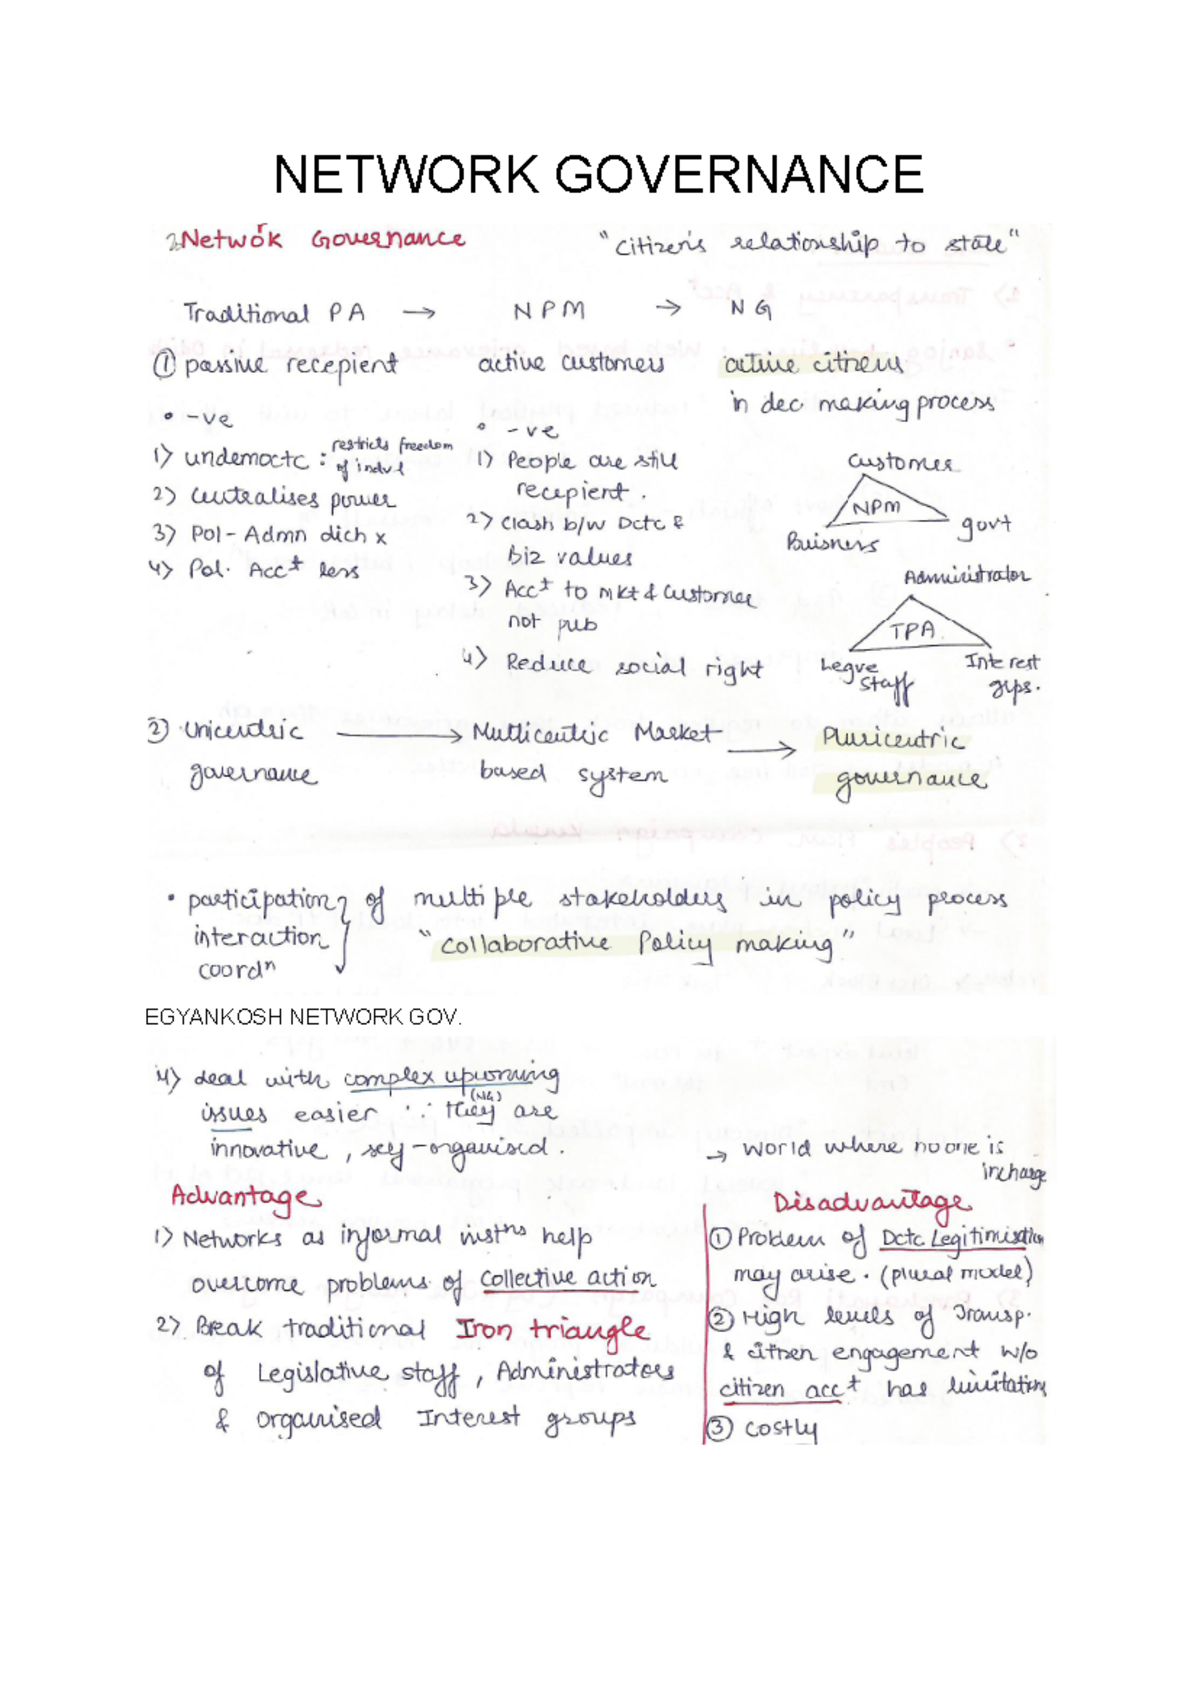 NETWORK GOVERNANCE
2. Network Governance "citizen's relationship to state"
Traditional PA → NPM → NG
① passive recepient active customers active citizens
in dec making process
• -ve
1) undemoctc : restricts freedom
of indvl
2) Centralises power
3) Pol - Admn dich x
4) Pol. Acc+ less
• -ve
1) People are still
recepient.
2) Clash b/w Dctc &
Biz values
3) Acc+ to mkt & customer
not pub
4) Reduce social right
Customer
NPM
Buisness govt
Administrator
TPA
Legve
staff
Interest
grps.
2) Unicentric → Multicentric Market → Pluricentric
governance based system governance
• participation of multiple stakeholders in policy process
interaction "Collaborative Policy making"
coordn
EGYANKOSH NETWORK GOV.
4) deal with complex upcoming
issues easier ∵ they (NG) are
innovative, self-organised.
→ World where no one is
incharge
Advantage
1) Networks as informal instns help
overcome problems of collective action
2) Break traditional Iron triangle
of Legislative staff, Administrators
& Organised Interest groups
Disadvantage
① Problem of Dctc Legitimisation
may arise. (plural model)
② High levels of Transp.
& citizen engagement w/o
citizen acc+ has limitations
③ costly